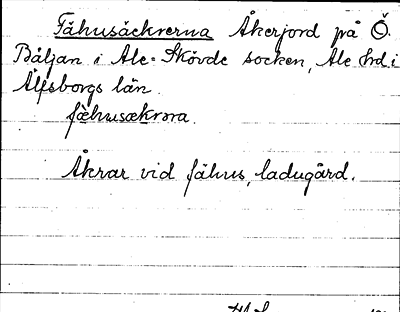 Fähusäckrerna Åkerjord på Ö.
Båljan i Ale-Skövde socken, Ale hrd. i
Älfsborgs län.
fæhusækrɷra.
Åkrar vid fähus, ladugård.